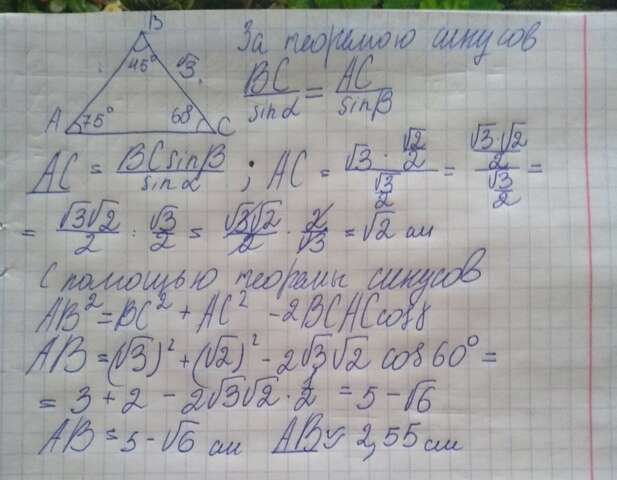 B
45° √3
A 75° 68 C
За теоремою синусов
BC/sinα = AC/sinβ
AC = BCsinβ/sinα ; AC = (√3 · √2/2)/(√3/2) = (√3·√2/2)/(√3/2) =
= √3√2/2 : √3/2 = √3√2/2 · 2/√3 = √2 см
С помощью теоремы синусов
AB² = BC² + AC² - 2BCACcosγ
AB = (√3)² + (√2)² - 2√3√2 cos60° =
= 3 + 2 - 2√3√2 · 1/2 = 5 - √6
AB = 5 - √6 см AB ≈ 2,55 см